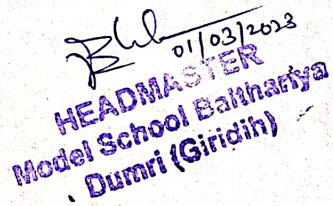 01/03/2023
HEADMASTER
Model School Balthariya
, Dumri (Giridih)